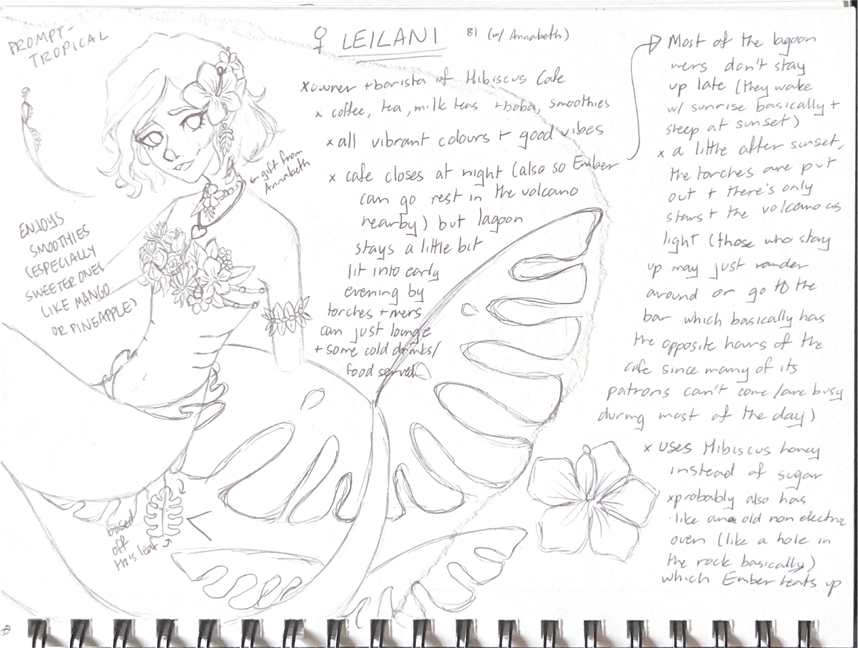 PROMPT-
TROPICAL
♀ LEILANI
BI (w/ Annabeth)
x owner + barista of Hibiscus Cafe
x coffee, tea, milk teas + boba, smoothies
x all vibrant colours + good vibes
x cafe closes at night (also so Ember
can go rest in the volcano
nearby) but lagoon
stays a little bit
lit into early
evening by
torches + mers
can just lounge
+ some cold drinks/
food served
← gift from
Annabeth
ENJOYS
SMOOTHIES
(ESPECIALLY
SWEETER ONES
LIKE MANGO
OR PINEAPPLE)
based
off
this leaf
Most of the lagoon
mers don't stay
up late (they wake
w/ sunrise basically +
sleep at sunset)
x a little after sunset,
the torches are put
out + there's only
stars + the volcano as
light (those who stay
up may just wander
around or go to the
bar which basically has
the opposite hours of the
cafe since many of its
patrons can't come/are busy
during most of the day)
x uses Hibiscus honey
instead of sugar
x probably also has
like an old non electric
oven (like a hole in
the rock basically)
which Ember heats up